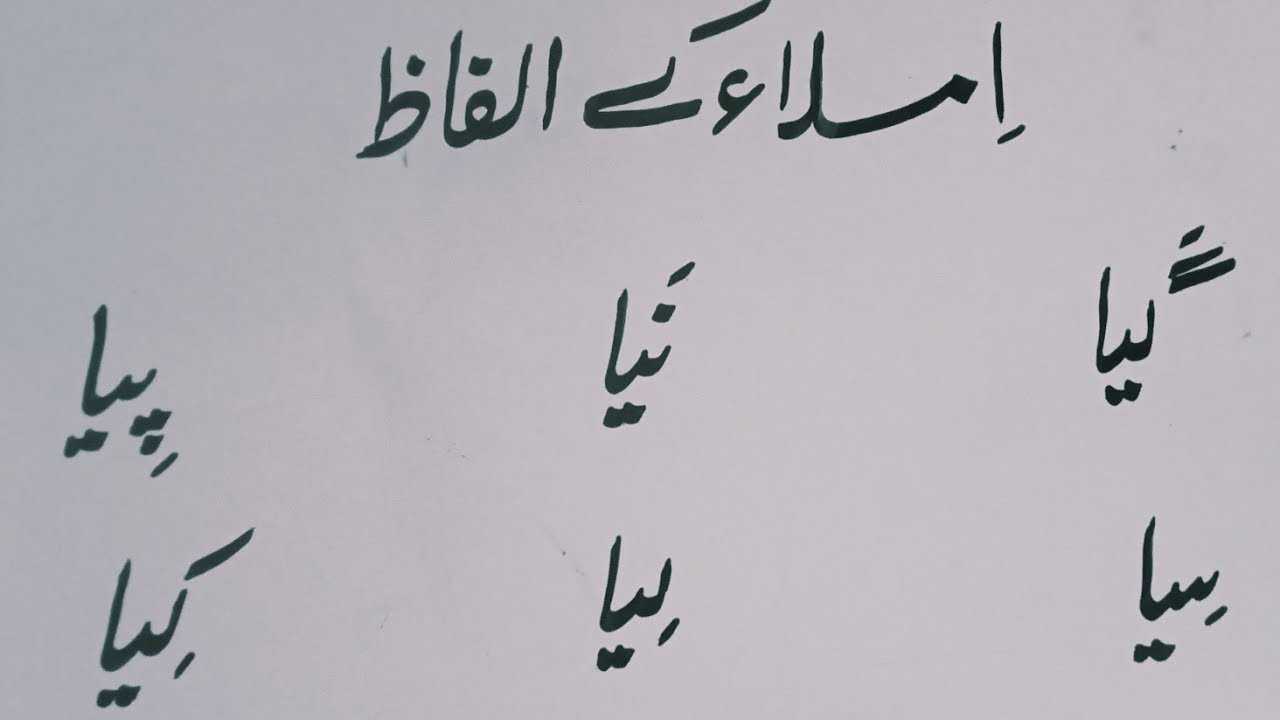 اِملاء کے الفاظ
گَیا نَیا پِیا
سِیا لِیا کِیا